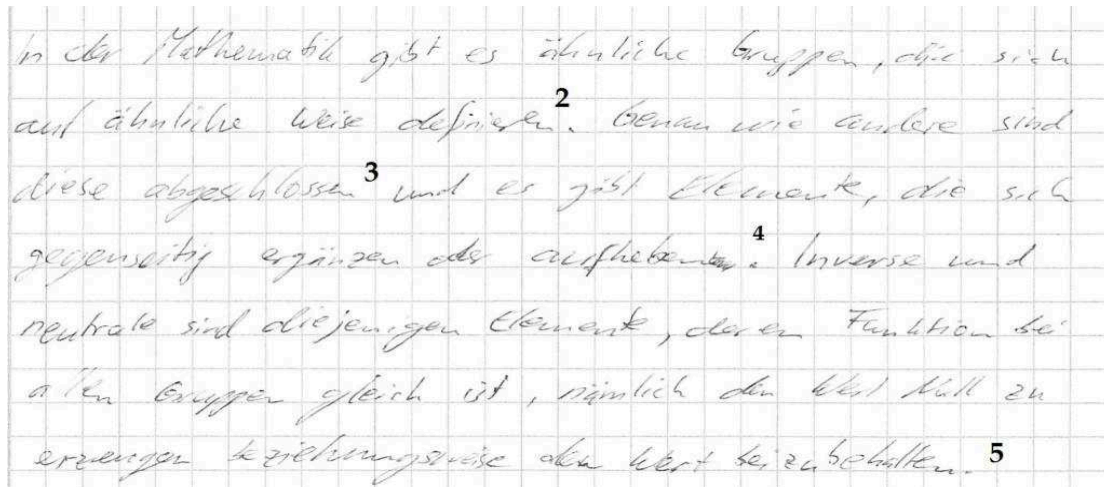 In der Mathematik gibt es ähnliche Gruppen, die sich
auf ähnliche Weise definieren. 2 Genau wie andere sind
diese abgeschlossen 3 und es gibt Elemente, die sich
gegenseitig ergänzen oder aufheben. 4 Inverse und
neutrale sind diejenigen Elemente, deren Funktion bei
allen Gruppen gleich ist, nämlich den Wert Null zu
erzeugen beziehungsweise den Wert beizubehalten. 5